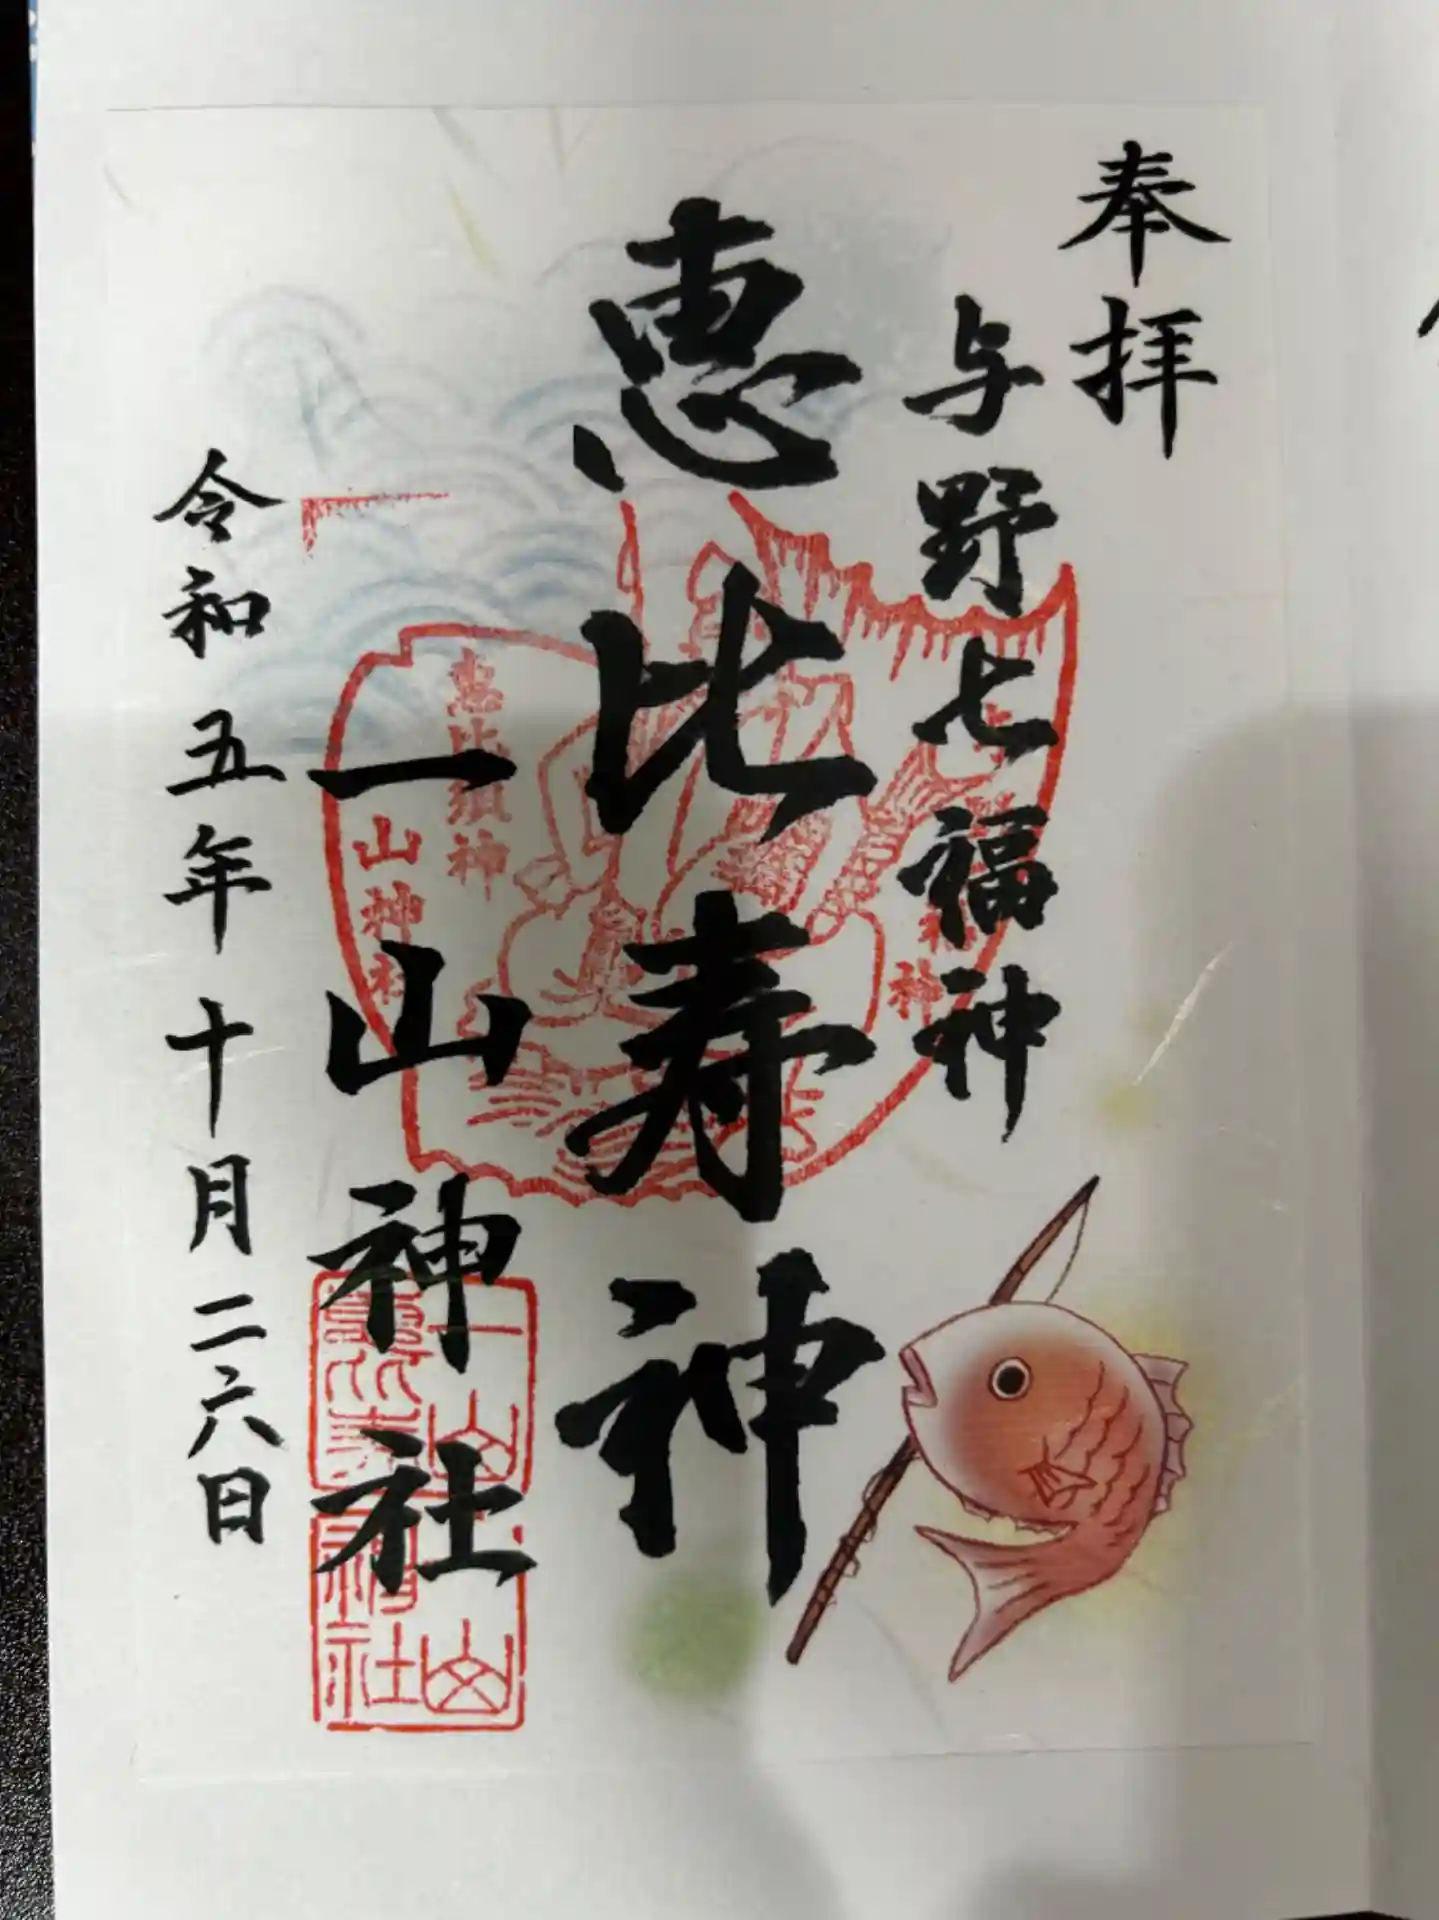 奉拝
与野七福神
恵比寿神
一山神社
令和五年十月二六日
恵比須神
山神社